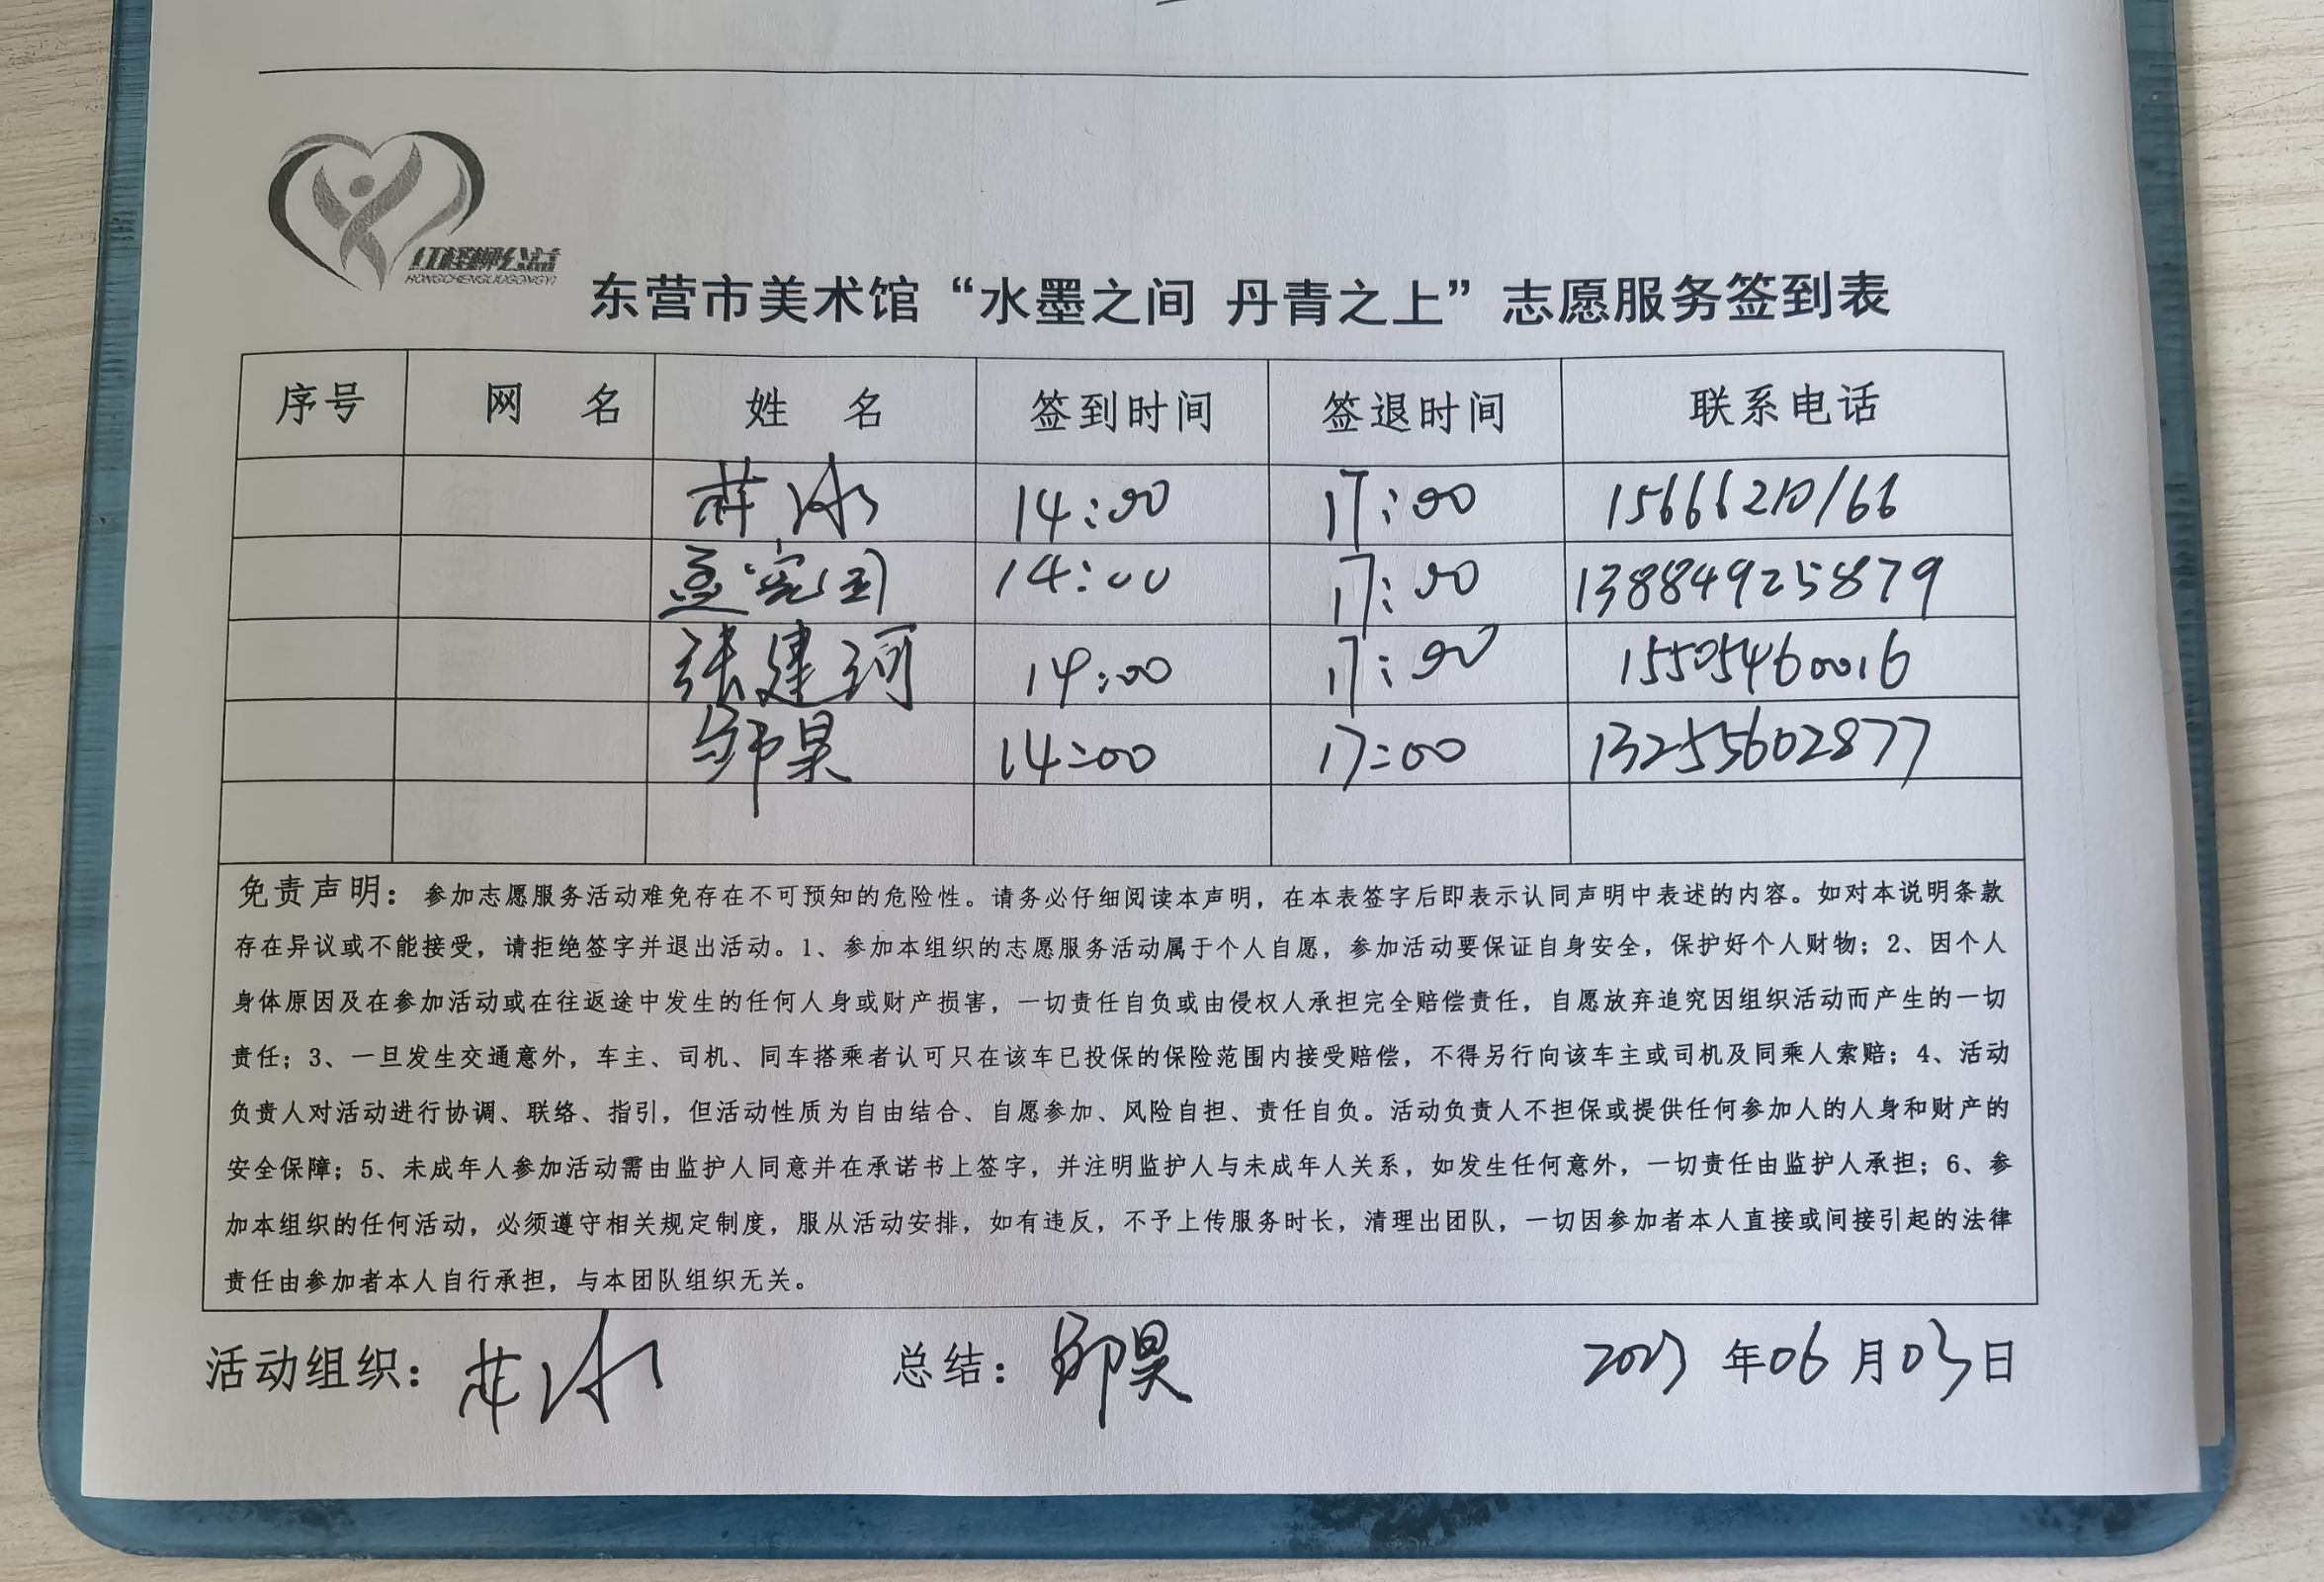 红柽柳公益
HONGCHENGLIUGONGYI
东营市美术馆“水墨之间 丹青之上”志愿服务签到表
序号 网 名 姓 名 签到时间 签退时间 联系电话
冰 14:00 17:00 15666210166
孟宪国 14:00 17:00 138849258879
张建河 14:00 17:00 15505460016
邹昊 14:00 17:00 13255602877
免责声明：参加志愿服务活动难免存在不可预知的危险性。请务必仔细阅读本声明，在本表签字后即表示认同声明中表述的内容。如对本说明条款
存在异议或不能接受，请拒绝签字并退出活动。1、参加本组织的志愿服务活动属于个人自愿，参加活动要保证自身安全，保护好个人财物；2、因个人
身体原因及在参加活动或在往返途中发生的任何人身或财产损害，一切责任自负或由侵权人承担完全赔偿责任，自愿放弃追究因组织活动而产生的一切
责任；3、一旦发生交通意外，车主、司机、同车搭乘者认可只在该车已投保的保险范围内接受赔偿，不得另行向该车主或司机及同乘人索赔；4、活动
负责人对活动进行协调、联络、指引，但活动性质为自由结合、自愿参加、风险自担、责任自负。活动负责人不担保或提供任何参加人的人身和财产的
安全保障；5、未成年人参加活动需由监护人同意并在承诺书上签字，并注明监护人与未成年人关系，如发生任何意外，一切责任由监护人承担；6、参
加本组织的任何活动，必须遵守相关规定制度，服从活动安排，如有违反，不予上传服务时长，清理出团队，一切因参加者本人直接或间接引起的法律
责任由参加者本人自行承担，与本团队组织无关。
活动组织： 冰 总结：邹昊 2023 年06 月03日